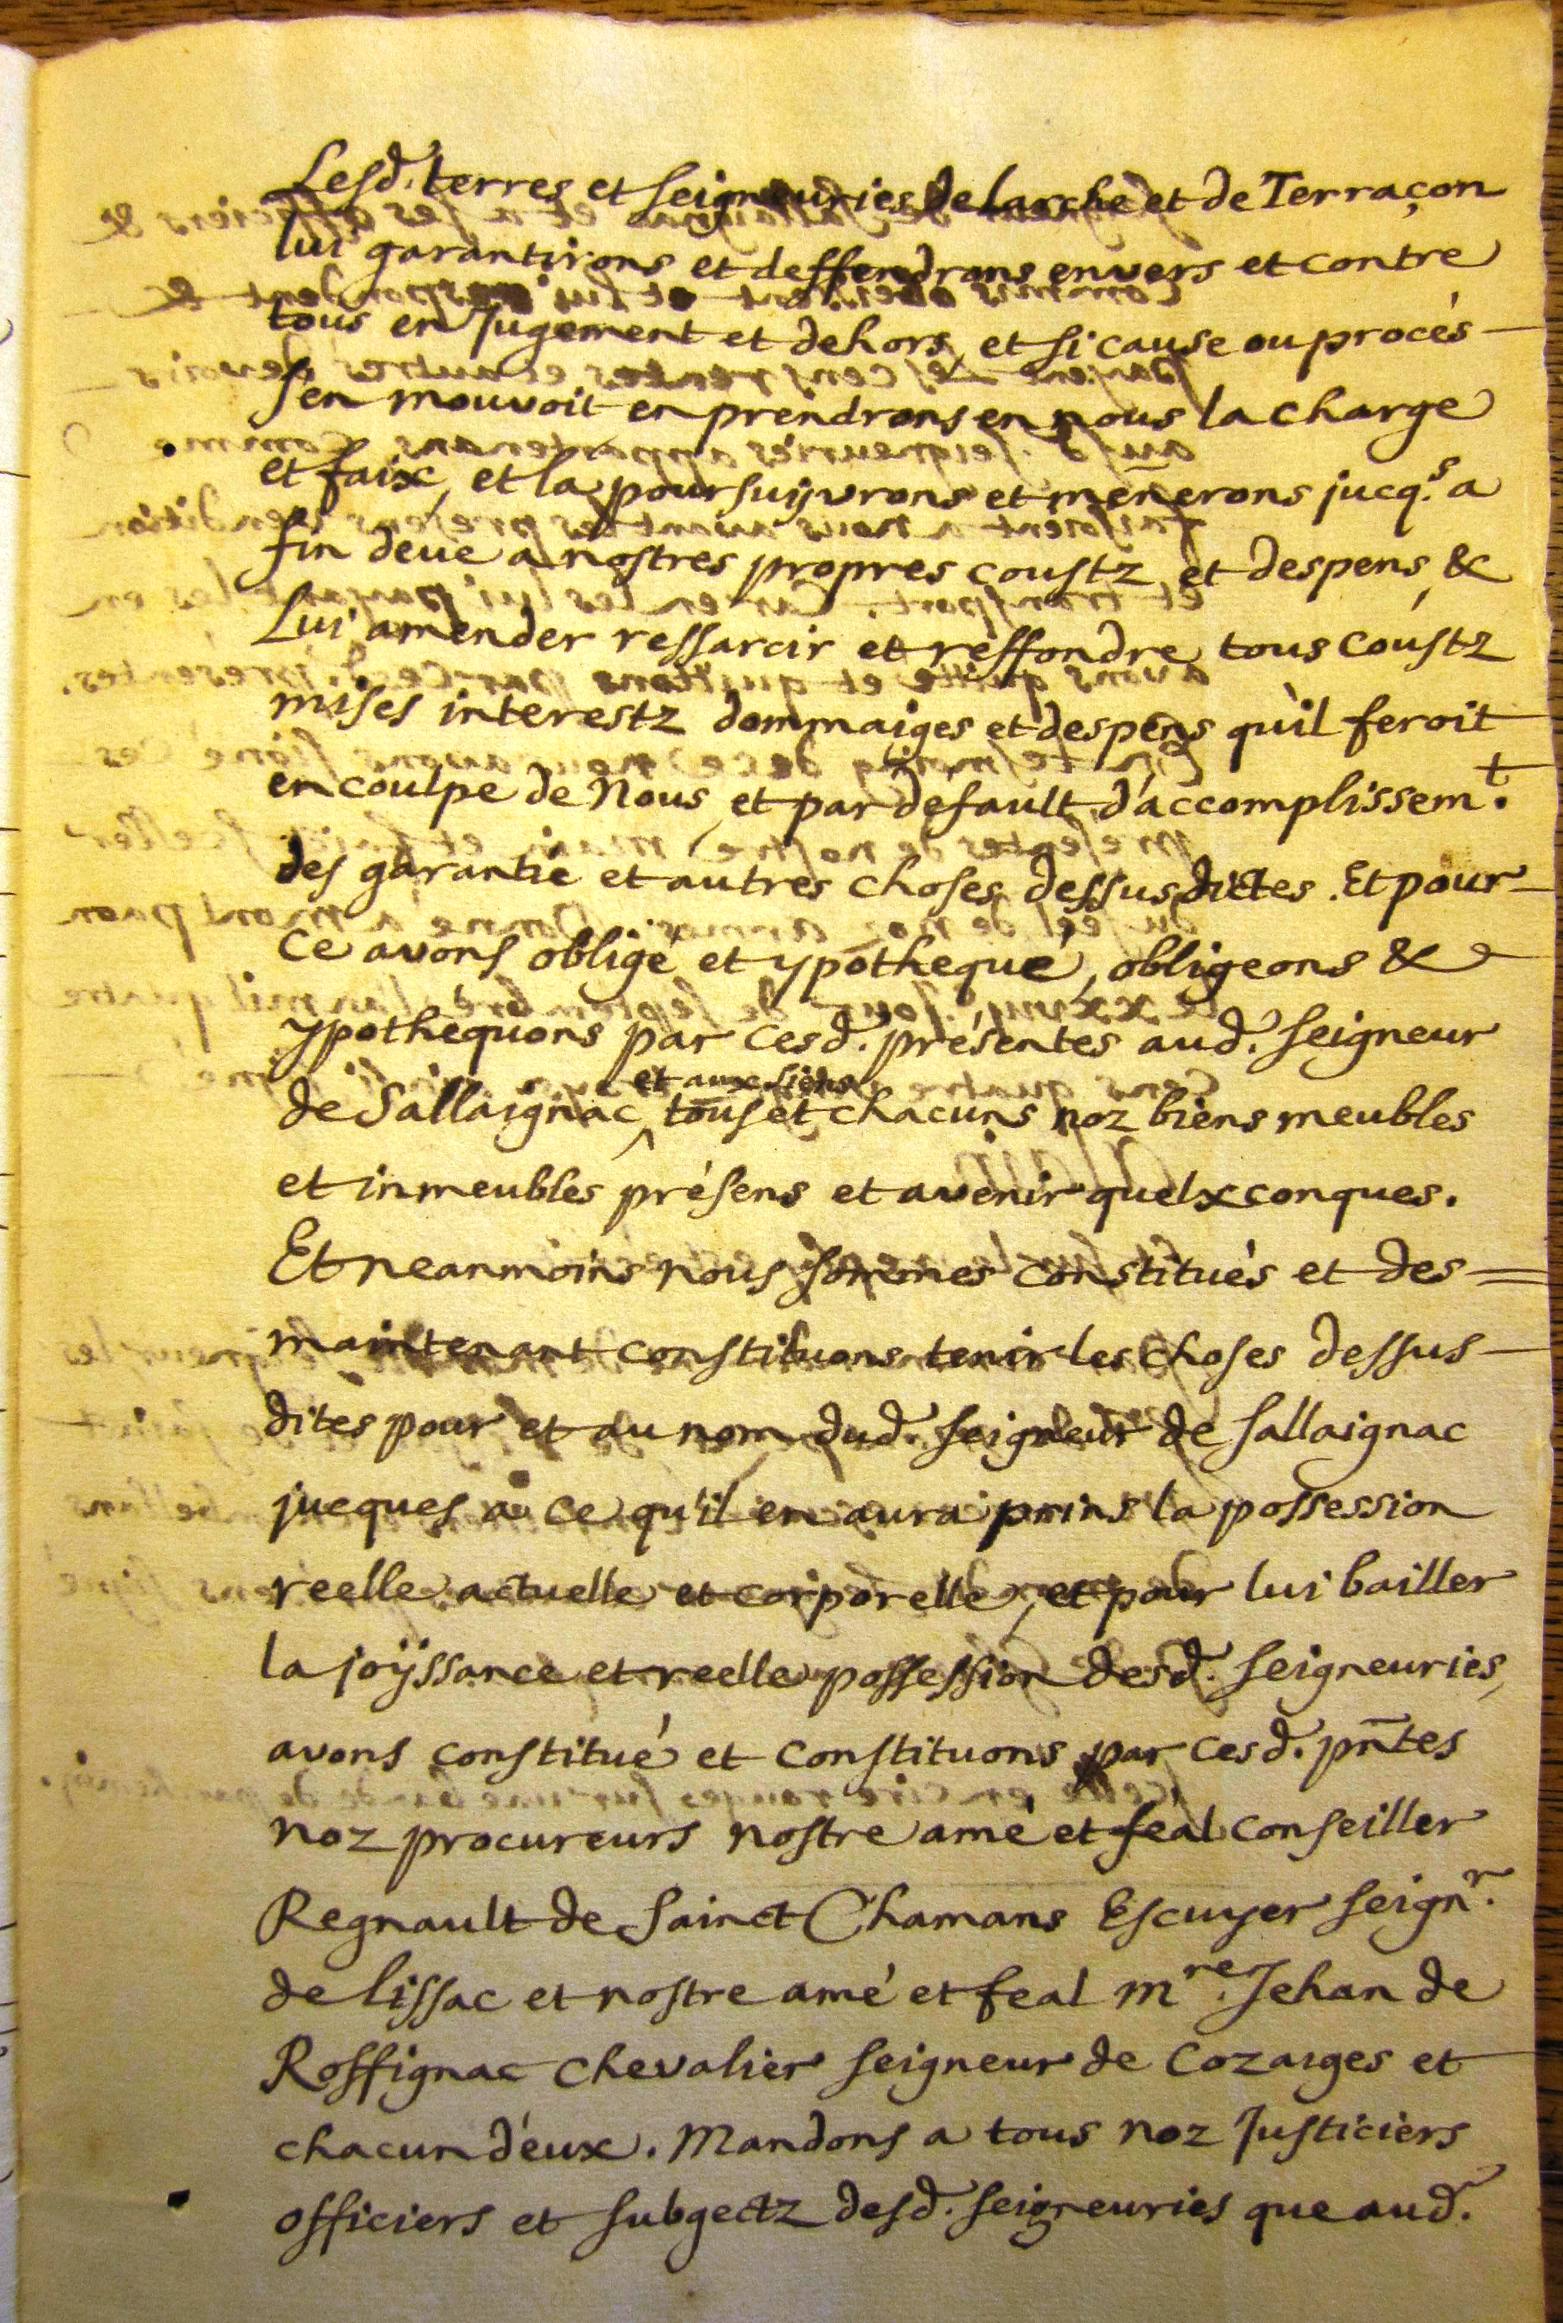 Lesd. terres et seigneuries de Larche et de Terraçon
lui garantirons et deffendrons envers et contre
tous en Jugement et dehors, et si cause ou procés
s'en mouvoit en prendrons en nous la charge
et faix, et la poursuijvrons et menerons jucq.s a
fin deue a nostres propres coustz, et despens, &
Lui amender ressarcir et reffondre tous coustz
mises interestz dommaiges et despens qu'il feroit
en coulpe de Nous, et par défault d'accomplissem.t
des garantie et autres choses dessus dictes. Et pour
ce avons obligé et ypothequé, obligeons &
ypothequons par cesd. présentes aud. seigneur
et aux siens
de Sallaignac ^ tous et chacuns noz biens meubles
et inmeubles présens et avenir quelxconques.
Et neanmoins nous sommes constitués et des =
maintenant constituons tenir les choses dessus-
dites pour et au nom dud. seigneur de sallaignac
jucques a ce qu'il en aura prins la possession
reelle actuelle et corporelle, et pour lui bailler
la joÿssance et reelle possession desd. seigneuries,
avons constitué et constituons par cesd. pñtes
noz procureurs nostre amé et féal conseiller
Regnault de Sainct Chamans Escuyer seign.r
de lissac et nostre amé et feal m.re Jehan de
Roffignac chevalier seigneur de Cozaiges et
chacun d'eux. Mandons a tous noz Justiciers
officiers et subgectz desd. seigneuries que aud.